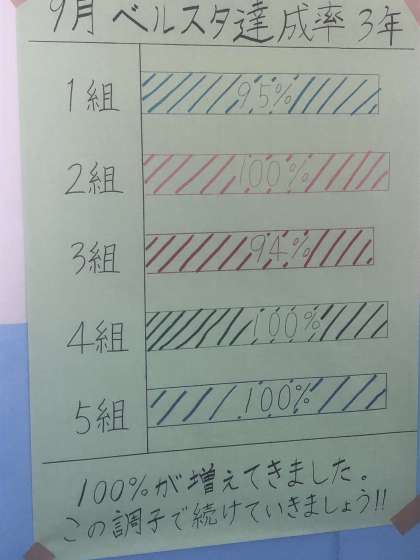 9月 ベルスタ達成率 3年
1組 95%
2組 100%
3組 94%
4組 100%
5組 100%
100%が増えてきました。
この調子で続けていきましょう!!